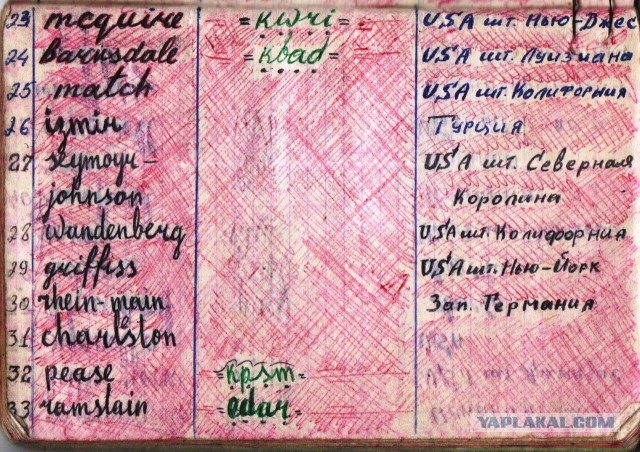 23 mcguire =kwri= USA шт. Нью-Джес
24 barksdale =kbad= USA шт. Луизиана
25 match USA шт. Колифорния
26 izmir Турция
27 seymour- USA шт. Северная
johnson Королина
28 wandenberg USA шт. Колифоорния
29 griffiss USA шт. Нью-Йорк
30 rhein-main Зап. Германия
31 charlston
32 pease =kpsm=
33 ramstain =edar=
YAPLAKAL.COM